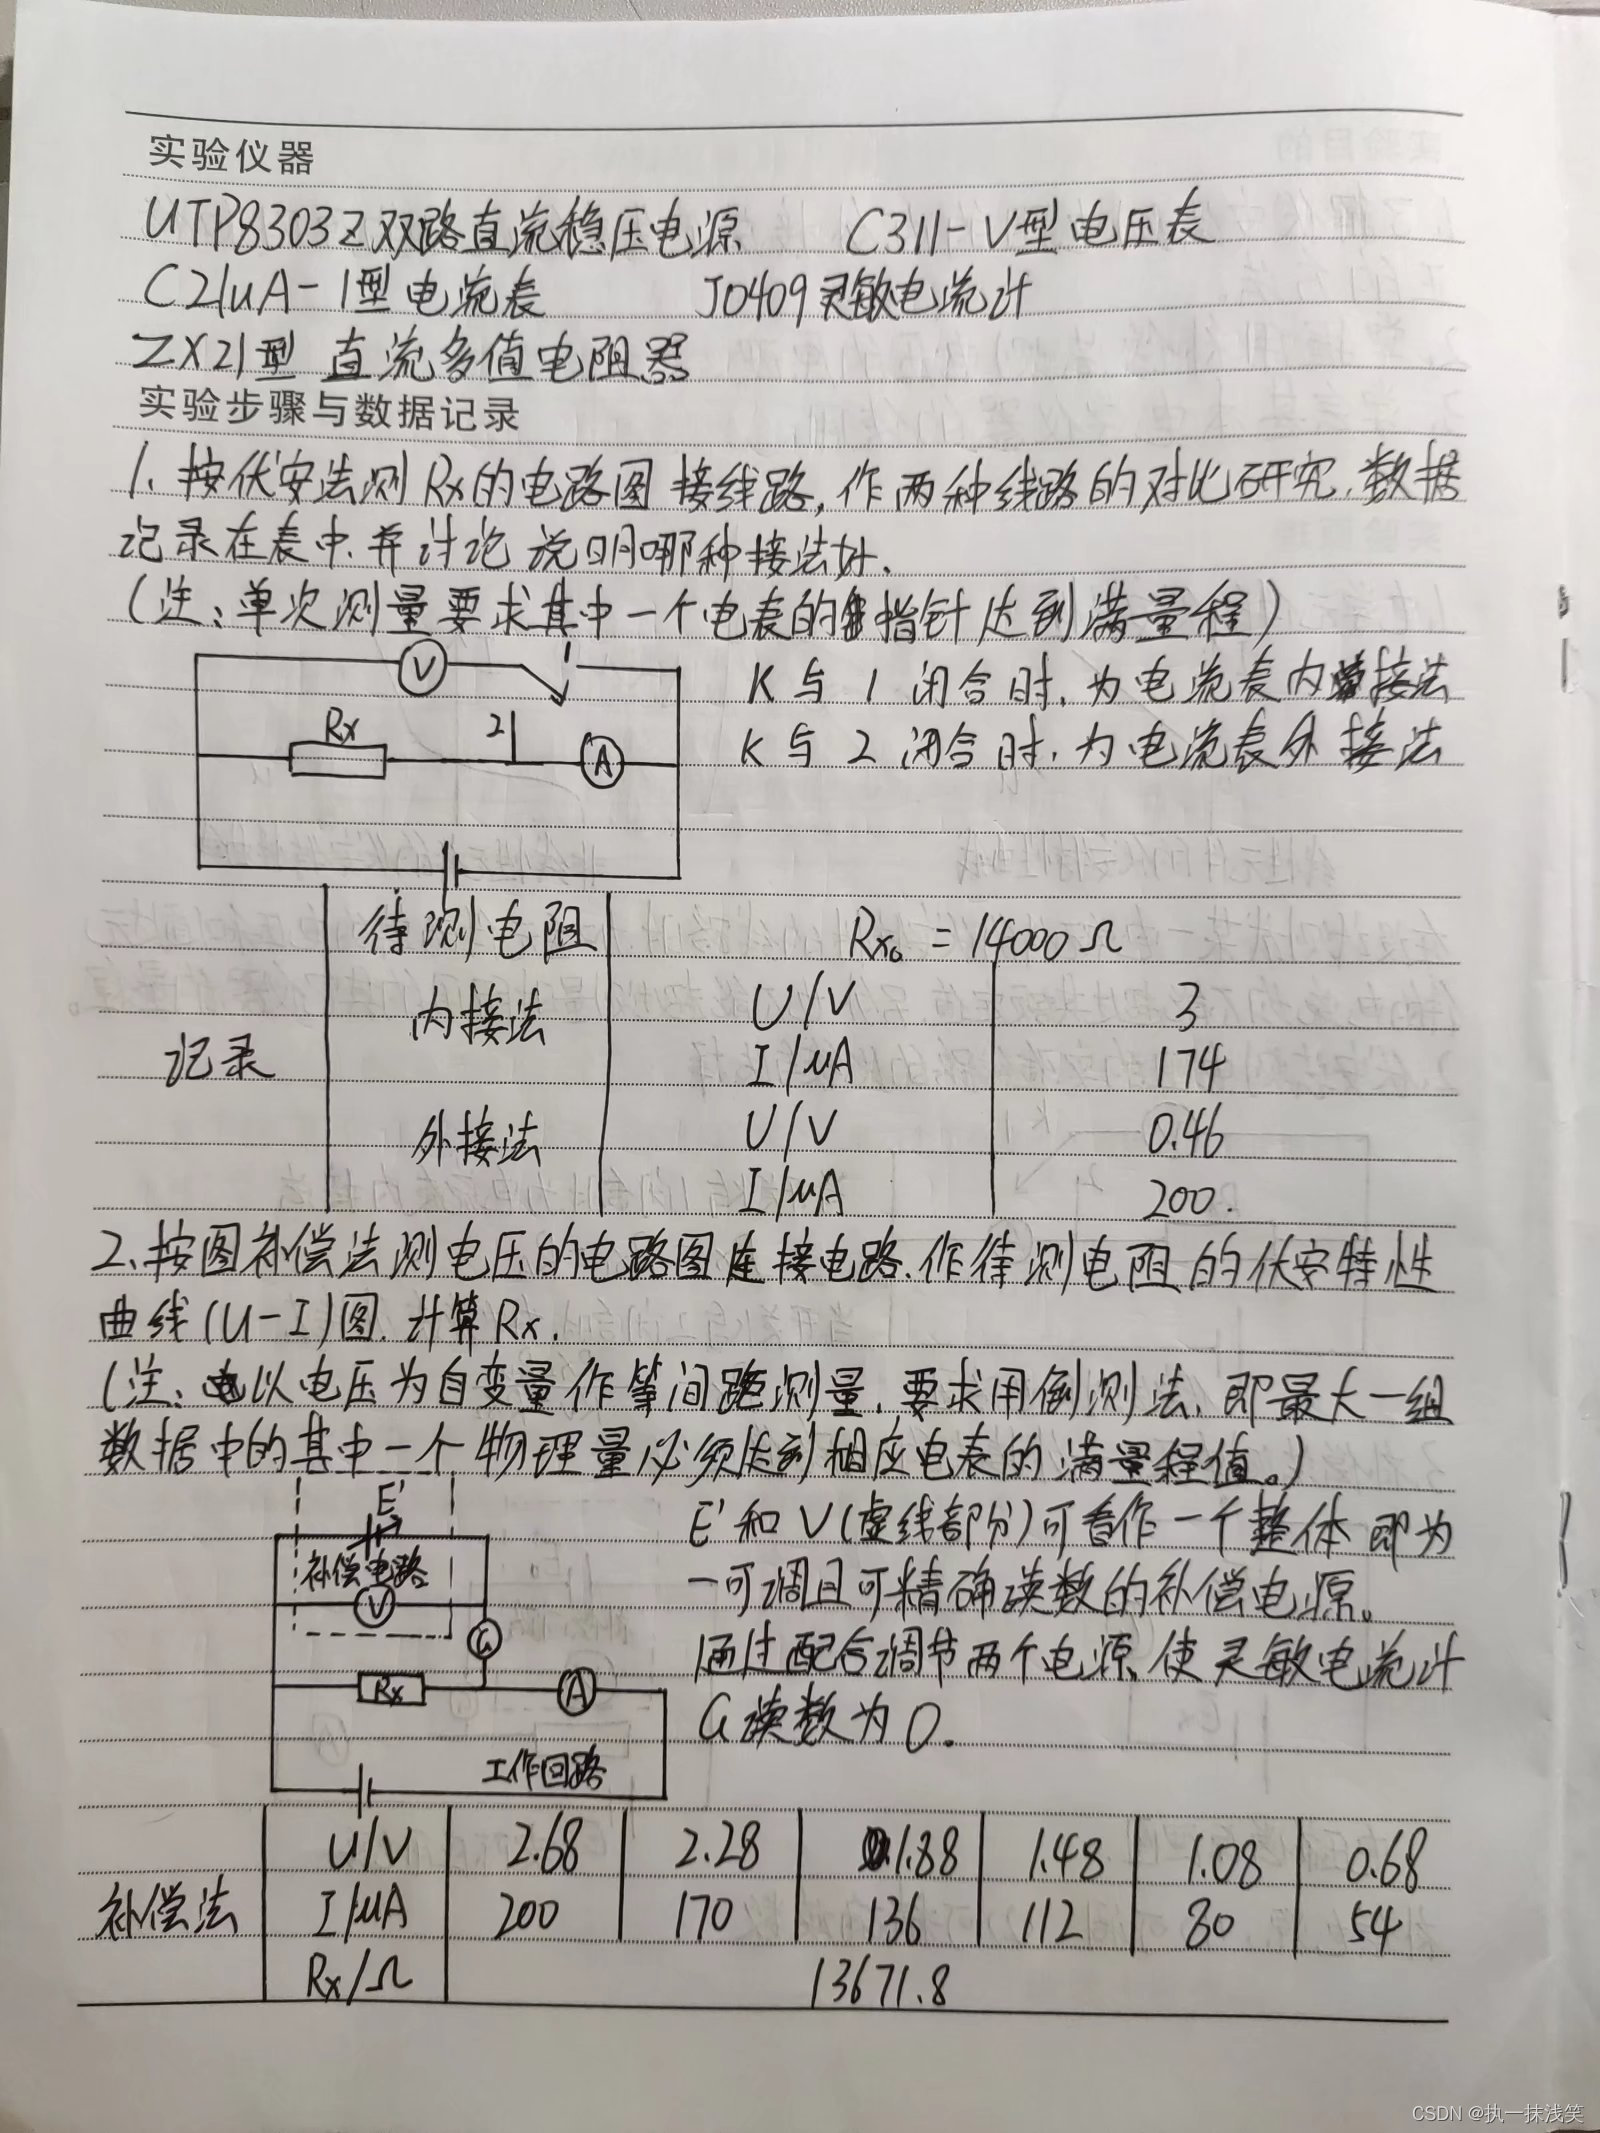 实验仪器
UTP8303Z双路直流稳压电源 C311-V型电压表
C21μA-1型电流表 J0409灵敏电流计
ZX21型 直流多值电阻器
实验步骤与数据记录
1、按伏安法测Rx的电路图接线路,作两种线路的对比研究,数据
记录在表中,并讨论说明哪种接法好.
(注:单次测量要求其中一个电表的指针达到满量程)
V 1
K与1闭合时,为电流表内接法
Rx 2 A
K与2闭合时,为电流表外接法
待测电阻 Rx₀ = 14000Ω
内接法 U/V 3
记录 I/μA 174
外接法 U/V 0.46
I/μA 200.
2、按图补偿法测电压的电路图连接电路,作待测电阻的伏安特性
曲线(U-I)图,计算Rx.
(注:以电压为自变量作等间距测量,要求用倒测法,即最大一组
数据中的其中一个物理量必须达到相应电表的满量程值。)
E'
E'和V(虚线部分)可看作一个整体即为
补偿电路
V
一可调且可精确读数的补偿电源。
G
通过配合调节两个电源,使灵敏电流计
Rx A
G读数为0.
工作回路
U/V 2.68 2.28 1.88 1.48 1.08 0.68
补偿法 I/μA 200 170 136 112 80 54
Rx/Ω 13671.8
CSDN @执一抹浅笑